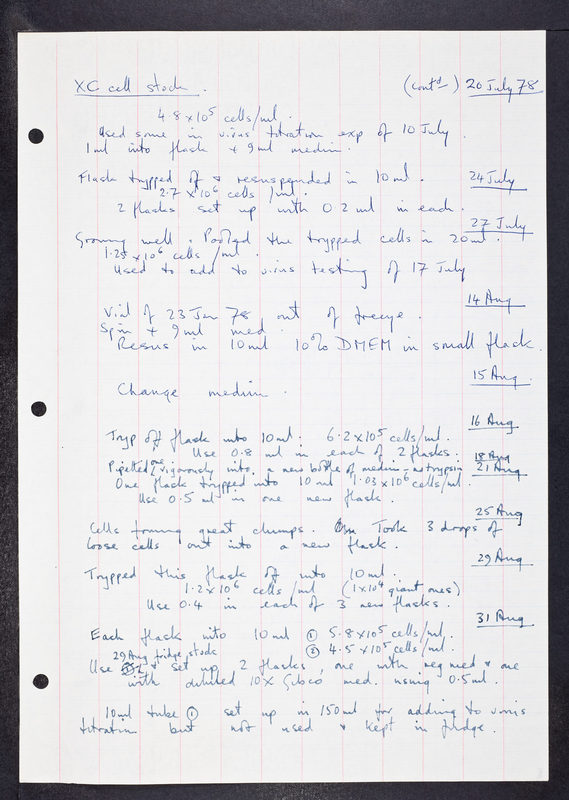 XC cell stock. (contd) 20 July 78
4.8 x 10⁵ cells/ml.
Used some in virus titration exp of 10 July.
1ml into flask + 9ml medium.
24 July
Flask trypped off & resuspended in 10ml.
2.7 x 10⁶ cells/ml.
2 flasks set up with 0.2 ml in each.
27 July
Growing well. Pooled the trypped cells in 20ml.
1.25 x 10⁶ cells/ml.
Used to add to virus testing of 17 July
14 Aug
Vial of 23 Jan 78 out of freeze.
Spin + 9ml med.
Resus in 10ml 10% DMEM in small flask.
15 Aug
Change medium.
16 Aug
Tryp off flask into 10ml. 6.2 x 10⁵ cells/ml.
Use 0.8 ml in each of 2 flasks.
18 Aug
Pipetted one vigorously into a new bottle of medium, no trypsin
21 Aug
One flask trypped into 10 ml 1.03 x 10⁶ cells/ml.
Use 0.5 ml in one new flask.
25 Aug
Cells forming great clumps. Took 3 drops of
loose cells out into a new flask.
29 Aug
Trypped this flask off into 10ml.
1.2 x 10⁶ cells/ml (1 x 10⁴ giant ones)
Use 0.4 in each of 3 new flasks.
31 Aug
Each flask into 10ml ① 5.8 x 10⁵ cells/ml.
② 4.5 x 10⁵ cells/ml.
29 Aug fridge stock
Use & set up 2 flasks, one with reg med & one
with diluted 10X Gibco med. using 0.5ml.
10ml tube ① set up in 150ml for adding to virus
titration but not used & kept in fridge.